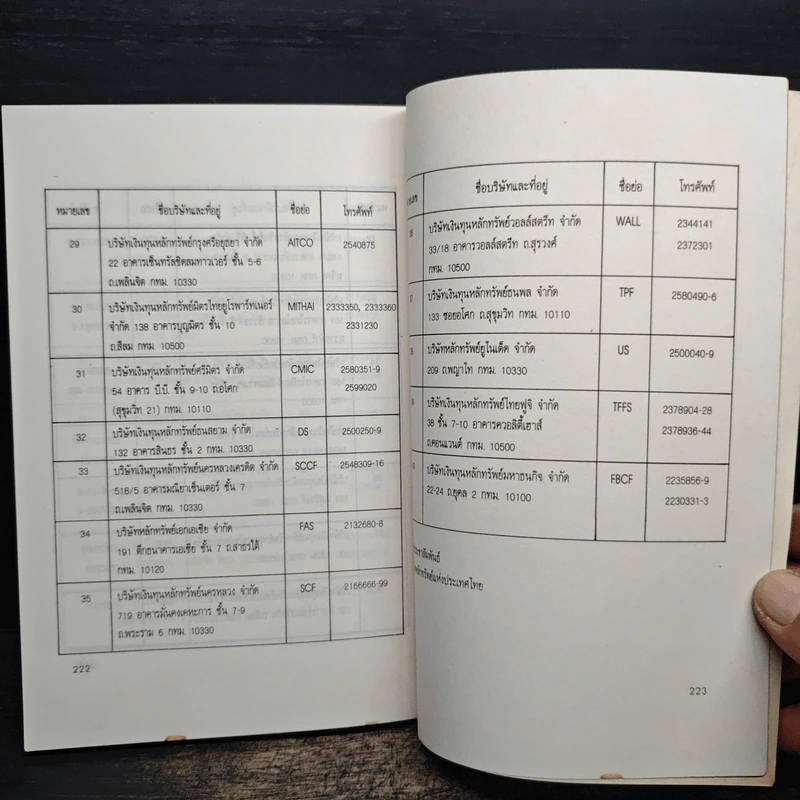 หมายเลข ชื่อบริษัทและที่อยู่ ชื่อย่อ โทรศัพท์
29 บริษัทเงินทุนหลักทรัพย์กรุงศรีอยุธยา จำกัด AITCO 2540875
22 อาคารเซ็นทรัลชิดลมทาวเวอร์ ชั้น 5-6
ถ.เพลินจิต กทม. 10330
30 บริษัทเงินทุนหลักทรัพย์มิตรไทยยูโรพาร์ทเนอร์ MITHAI 2333350, 2333360
จำกัด 138 อาคารบุญมิตร ชั้น 10 2331230
ถ.สีลม กทม. 10500
31 บริษัทเงินทุนหลักทรัพย์ศรีมิตร จำกัด CMIC 2580351-9
54 อาคาร บี.บี. ชั้น 9-10 ถ.อโศก 2599020
(สุขุมวิท 21) กทม. 10110
32 บริษัทเงินทุนหลักทรัพย์ธนสยาม จำกัด DS 2500250-9
132 อาคารสินธร ชั้น 2 กทม. 10330
33 บริษัทเงินทุนหลักทรัพย์นครหลวงเครดิต จำกัด SCCF 2548309-16
518/5 อาคารมณียาเซ็นเตอร์ ชั้น 7
ถ.เพลินจิต กทม. 10330
34 บริษัทหลักทรัพย์เอกเอเชีย จำกัด FAS 2132680-8
191 ตึกธนาคารเอเชีย ชั้น 7 ถ.สาธรใต้
กทม. 10120
35 บริษัทเงินทุนหลักทรัพย์นครหลวง จำกัด SCF 2166666-99
719 อาคารมั่นคงเคหะการ ชั้น 7-9
ถ.พระราม 6 กทม. 10330
222
ชื่อบริษัทและที่อยู่ ชื่อย่อ โทรศัพท์
บริษัทเงินทุนหลักทรัพย์วอลล์สตรีท จำกัด WALL 2344141
33/18 อาคารวอลล์สตรีท ถ.สุรวงศ์ 2372301
กทม. 10500
บริษัทเงินทุนหลักทรัพย์ธนพล จำกัด TPF 2580490-6
133 ซอยอโศก ถ.สุขุมวิท กทม. 10110
บริษัทหลักทรัพย์ยูไนเต็ด จำกัด US 2500040-9
209 ถ.พญาไท กทม. 10330
บริษัทเงินทุนหลักทรัพย์ไทยฟูจิ จำกัด TFFS 2378904-28
38 ชั้น 7-10 อาคารควอลิตี้เฮาส์ 2378936-44
ถ.คอนแวนต์ กทม. 10500
บริษัทเงินทุนหลักทรัพย์มหาธนกิจ จำกัด FBCF 2235856-9
22-24 ถ.ยุคล 2 กทม. 10100 2230331-3
ประชาสัมพันธ์
หลักทรัพย์แห่งประเทศไทย
223